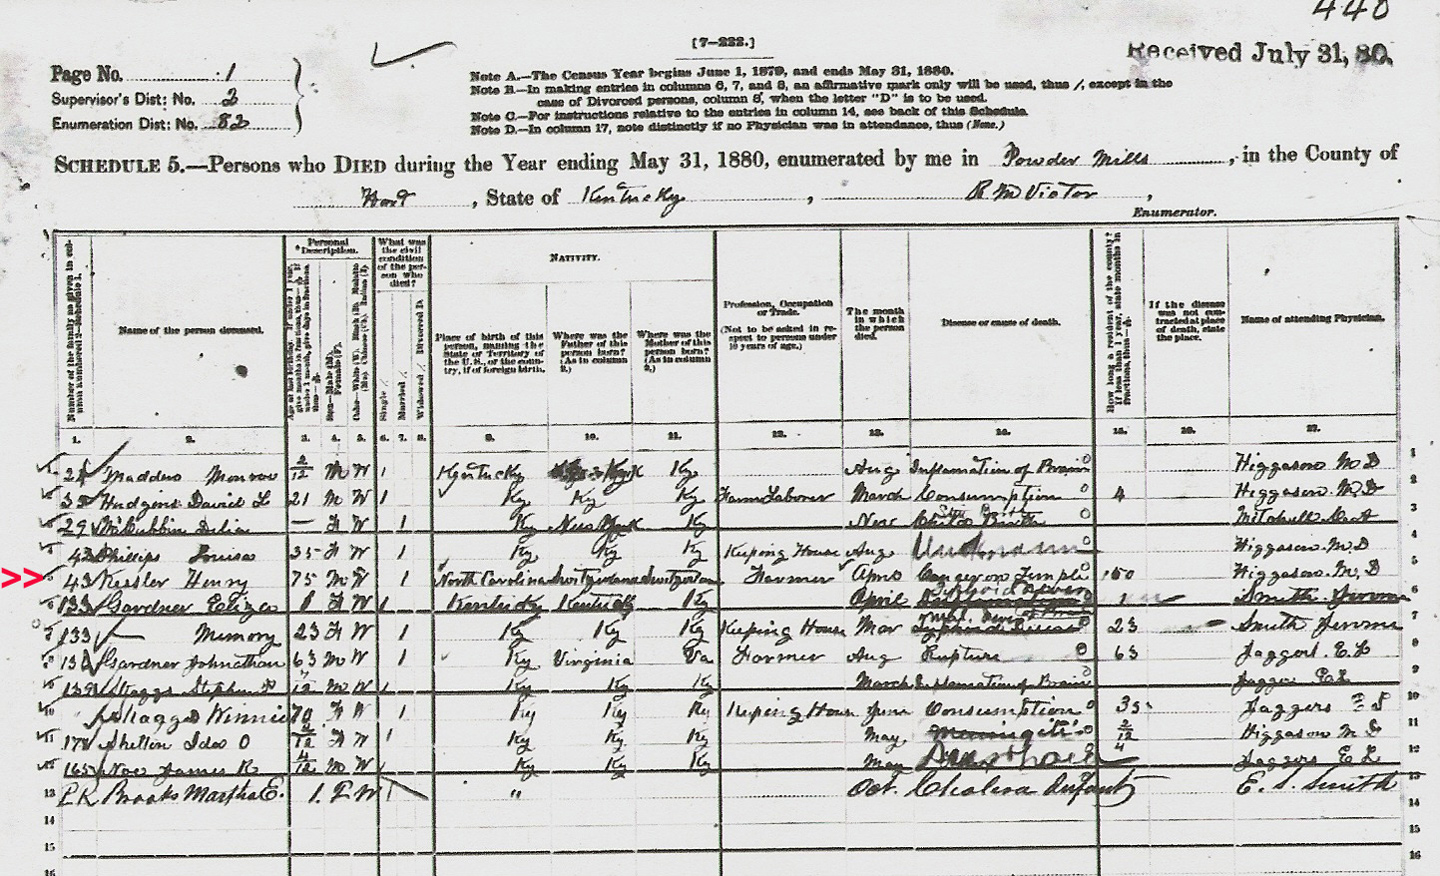 440
[7-222.]
Received July 31, 80.
Page No. 1
Supervisor's Dist: No. 2
Enumeration Dist: No. 82
Note A.—The Census Year begins June 1, 1879, and ends May 31, 1880.
Note B.—In making entries in columns 6, 7, and 8, an affirmative mark only will be used, thus /, except in the
case of Divorced persons, column 8, when the letter "D" is to be used.
Note C.—For instructions relative to the entries in column 14, see back of this Schedule.
Note D.—In column 17, note distinctly if no Physician was in attendance, thus (None.)
SCHEDULE 5.—Persons who DIED during the Year ending May 31, 1880, enumerated by me in Powder Mills, in the County of
Hart, State of Kentucky, R M Victor,
Enumerator.
Number of the family as given in column numbered 2—Schedule 1.
Name of the person deceased.
Personal Description.
What was the civil condition of the person who died?
Single /
Married /
Widowed /. Divorced D.
NATIVITY.
Place of birth of this person, naming the State or Territory of the U.S., or the country, if of foreign birth.
Where was the Father of this person born? (As in column 9.)
Where was the Mother of this person born? (As in column 9.)
Profession, Occupation or Trade. (Not to be asked in respect to persons under 10 years of age.)
The month in which the person died.
Disease or cause of death.
How long a resident of the county? If less than 1 year, state months in fractions, thus—
If the disease was not contracted at place of death, state the place.
Name of attending Physician.
1. 2. 3. 4. 5. 6. 7. 8. 9. 10. 11. 12. 13. 14. 15. 16. 17.
Madden Monroe 2/12 M W 1 Kentucky Ky Aug Inflamation of Brain Higgason M D 1
35 Hudgins David L 21 M W 1 Ky Ky Ky Farm Laborer March Consumption 4 Higgason. M.D 2
29 McCubbin Delia — F W 1 Ky New York Ky Nov Child Birth 3
42 Phillips Louisa 35 F W 1 Ky Ky Ky Keeping House Aug Unknown Higgason. M.D 4
>> 43 Kessler Henry 75 M W 1 North Carolina Switzerland Switzerland Farmer April Cancer on Temple 50 Higgason. M.D 5
133 Gardner Eliza F W 1 Kentucky Kentucky Ky April 1 Smith Jerome 6
133 — Memory 23 F W 1 Ky Ky Ky Keeping House Mar 23 Smith Jerome 7
Gardner Johnathan 63 M W 1 Ky Virginia Va Farmer Aug Rupture 63 Jaggers. E.L 8
139 Skaggs Stephen 7/12 M W 1 Ky Ky Ky March Inflamation of Brain Jaggers E L 9
Skaggs Winnie 70 F W 1 Ky Ky Ky Keeping House June Consumption 35 Jaggers E L 10
Shelton Ida O /12 F W 1 Ky Ky Ky May Meningitis 2/12 Higgason M D 11
165 Noe James R 4/12 M W 1 Ky Ky Ky May 4 Jaggers E L 12
13 Brooks Martha E. 1. F W " Oct. Cholera Infantum E. S. Smith 13
14 14
15 15
16 16